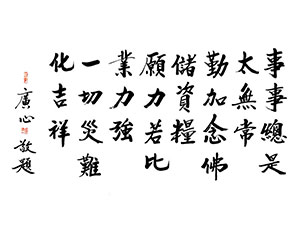 事事總是
太無常
勤加念佛
儲資糧
願力若比
業力強
一切災難
化吉祥
廣心敬題